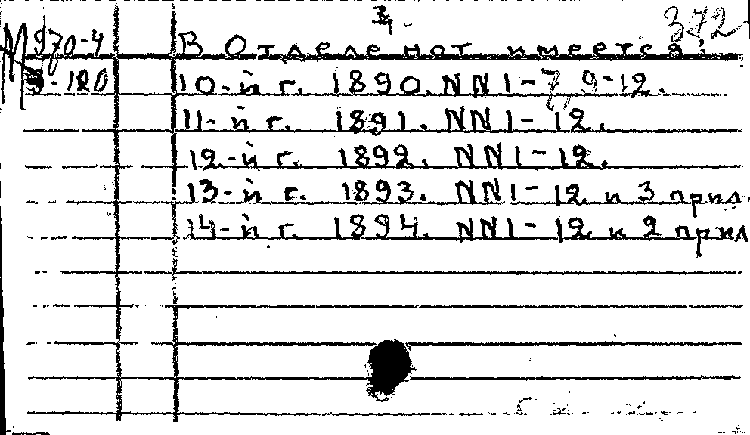 4.
372
М 970-4 В Отделе нот имеется:
-120 10-й г. 1890. NN1-7, 9-12.
11-й г. 1891. NN1-12.
12-й г. 1892. NN1-12.
13-й г. 1893. NN1-12 и 3 прил.
14-й г. 1894. NN1-12 и 2 прил